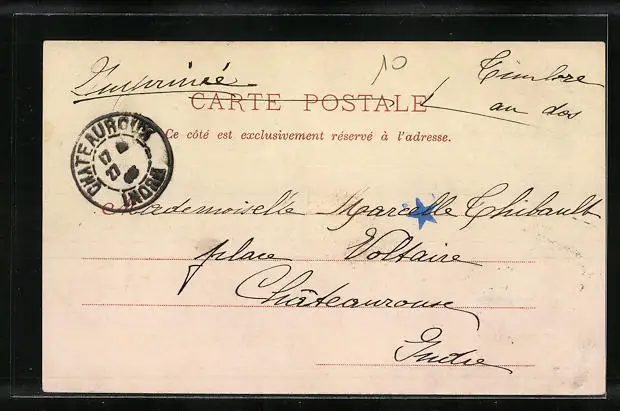 Imprimé
10
Timbre
au dos
CARTE POSTALE
Ce côté est exclusivement réservé à l'adresse.
CHATEAUROUX
INDRE
Mademoiselle Marcelle Thibault
place Voltaire
Châteauroux
Indre